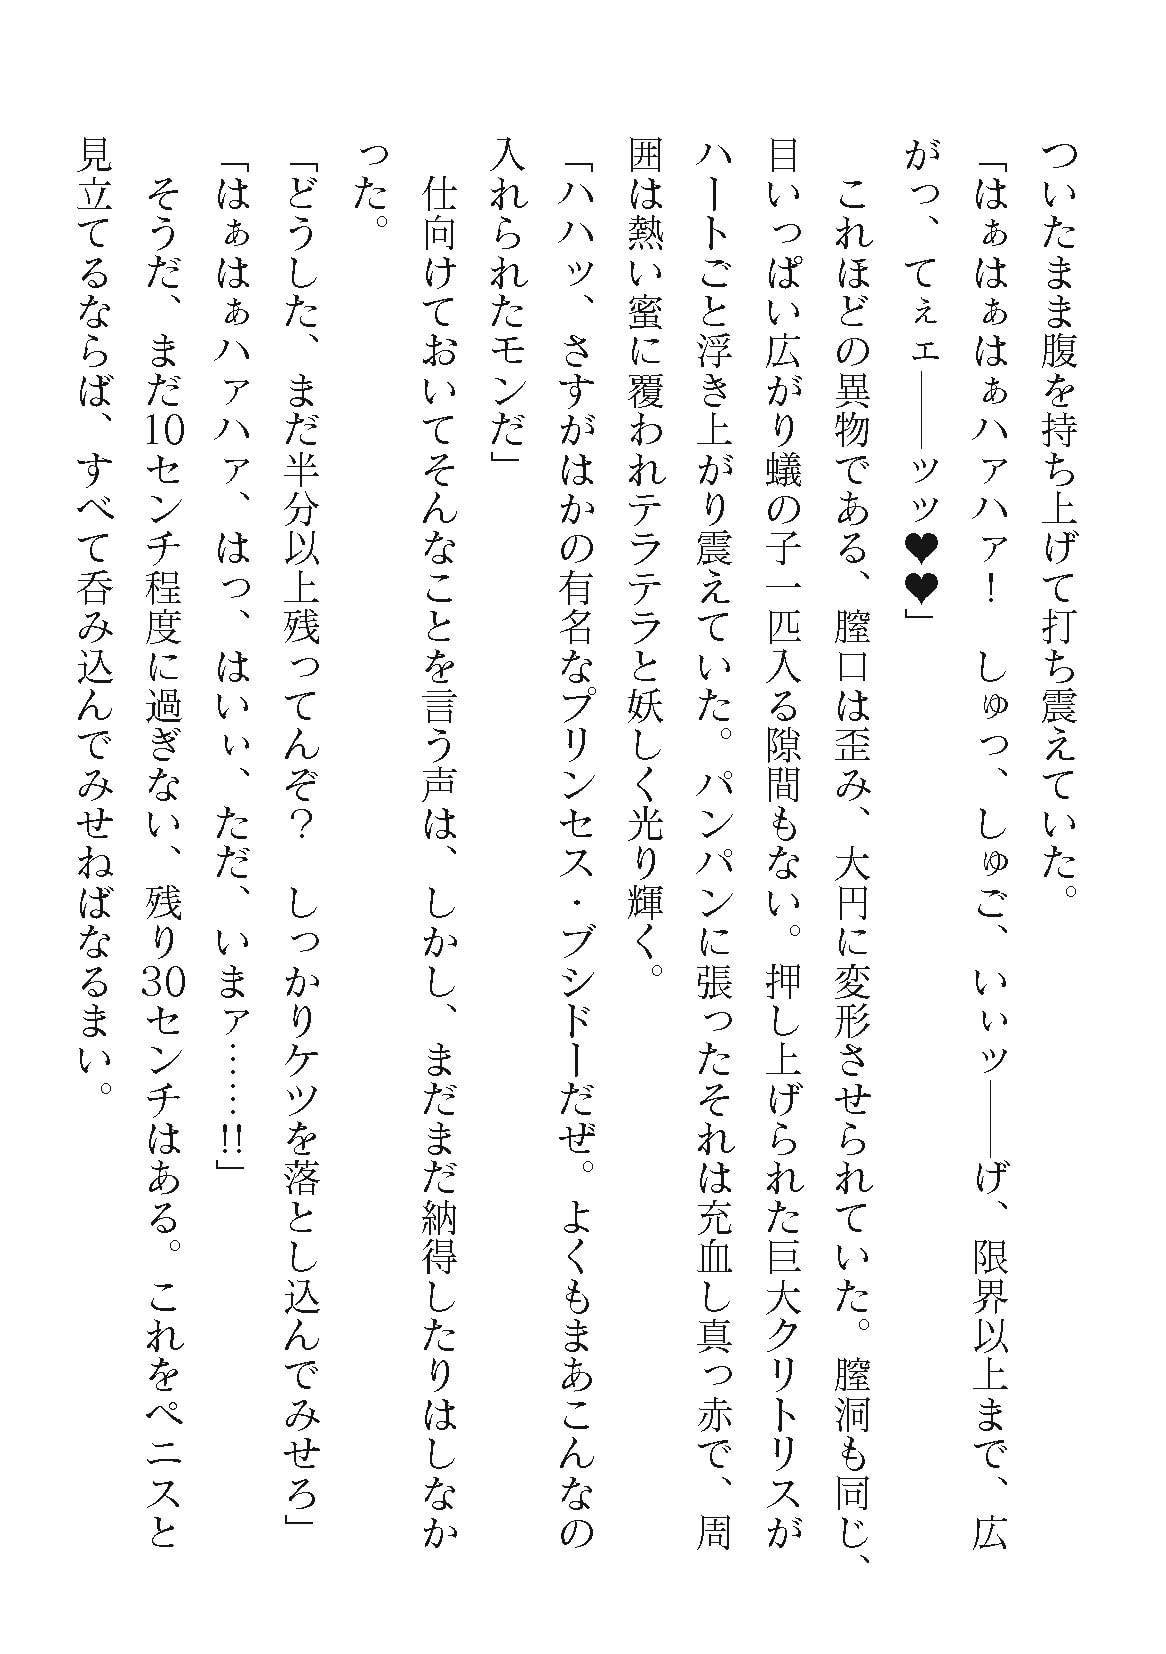 ついたまま腹を持ち上げて打ち震えていた。
「はぁはぁはぁハァハァ！　しゅっ、しゅご、いぃッ――げ、限界以上まで、広
がっ、てぇェ――ッッ♥♥」
　これほどの異物である、膣口は歪み、大円に変形させられていた。膣洞も同じ、
目いっぱい広がり蟻の子一匹入る隙間もない。押し上げられた巨大クリトリスが
ハートごと浮き上がり震えていた。パンパンに張ったそれは充血し真っ赤で、周
囲は熱い蜜に覆われテラテラと妖しく光り輝く。
「ハハッ、さすがはかの有名なプリンセス・ブシドーだぜ。よくもまあこんなの
入れられたモンだ」
　仕向けておいてそんなことを言う声は、しかし、まだまだ納得したりはしなか
った。
「どうした、まだ半分以上残ってんぞ？　しっかりケツを落とし込んでみせろ」
「はぁはぁハァハァ、はっ、はいぃ、ただ、いまァ……!!」
　そうだ、まだ10センチ程度に過ぎない、残り30センチはある。これをペニスと
見立てるならば、すべて呑み込んでみせねばなるまい。